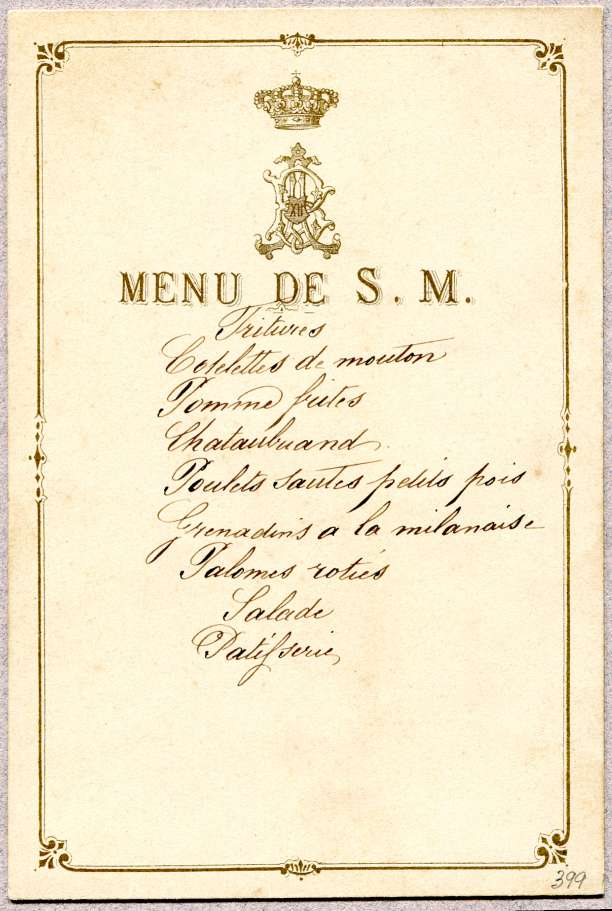 XII
MENU DE S. M.
Fritures
Cotelettes de mouton
Pomme frites
Chataubriand
Poulets sautes petits pois
Grenadins a la milanaise
Palomes roties
Salade
Patisserie
399